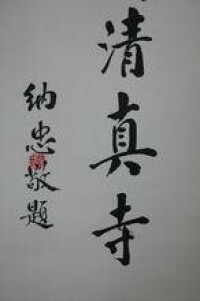 清真寺
纳忠敬题